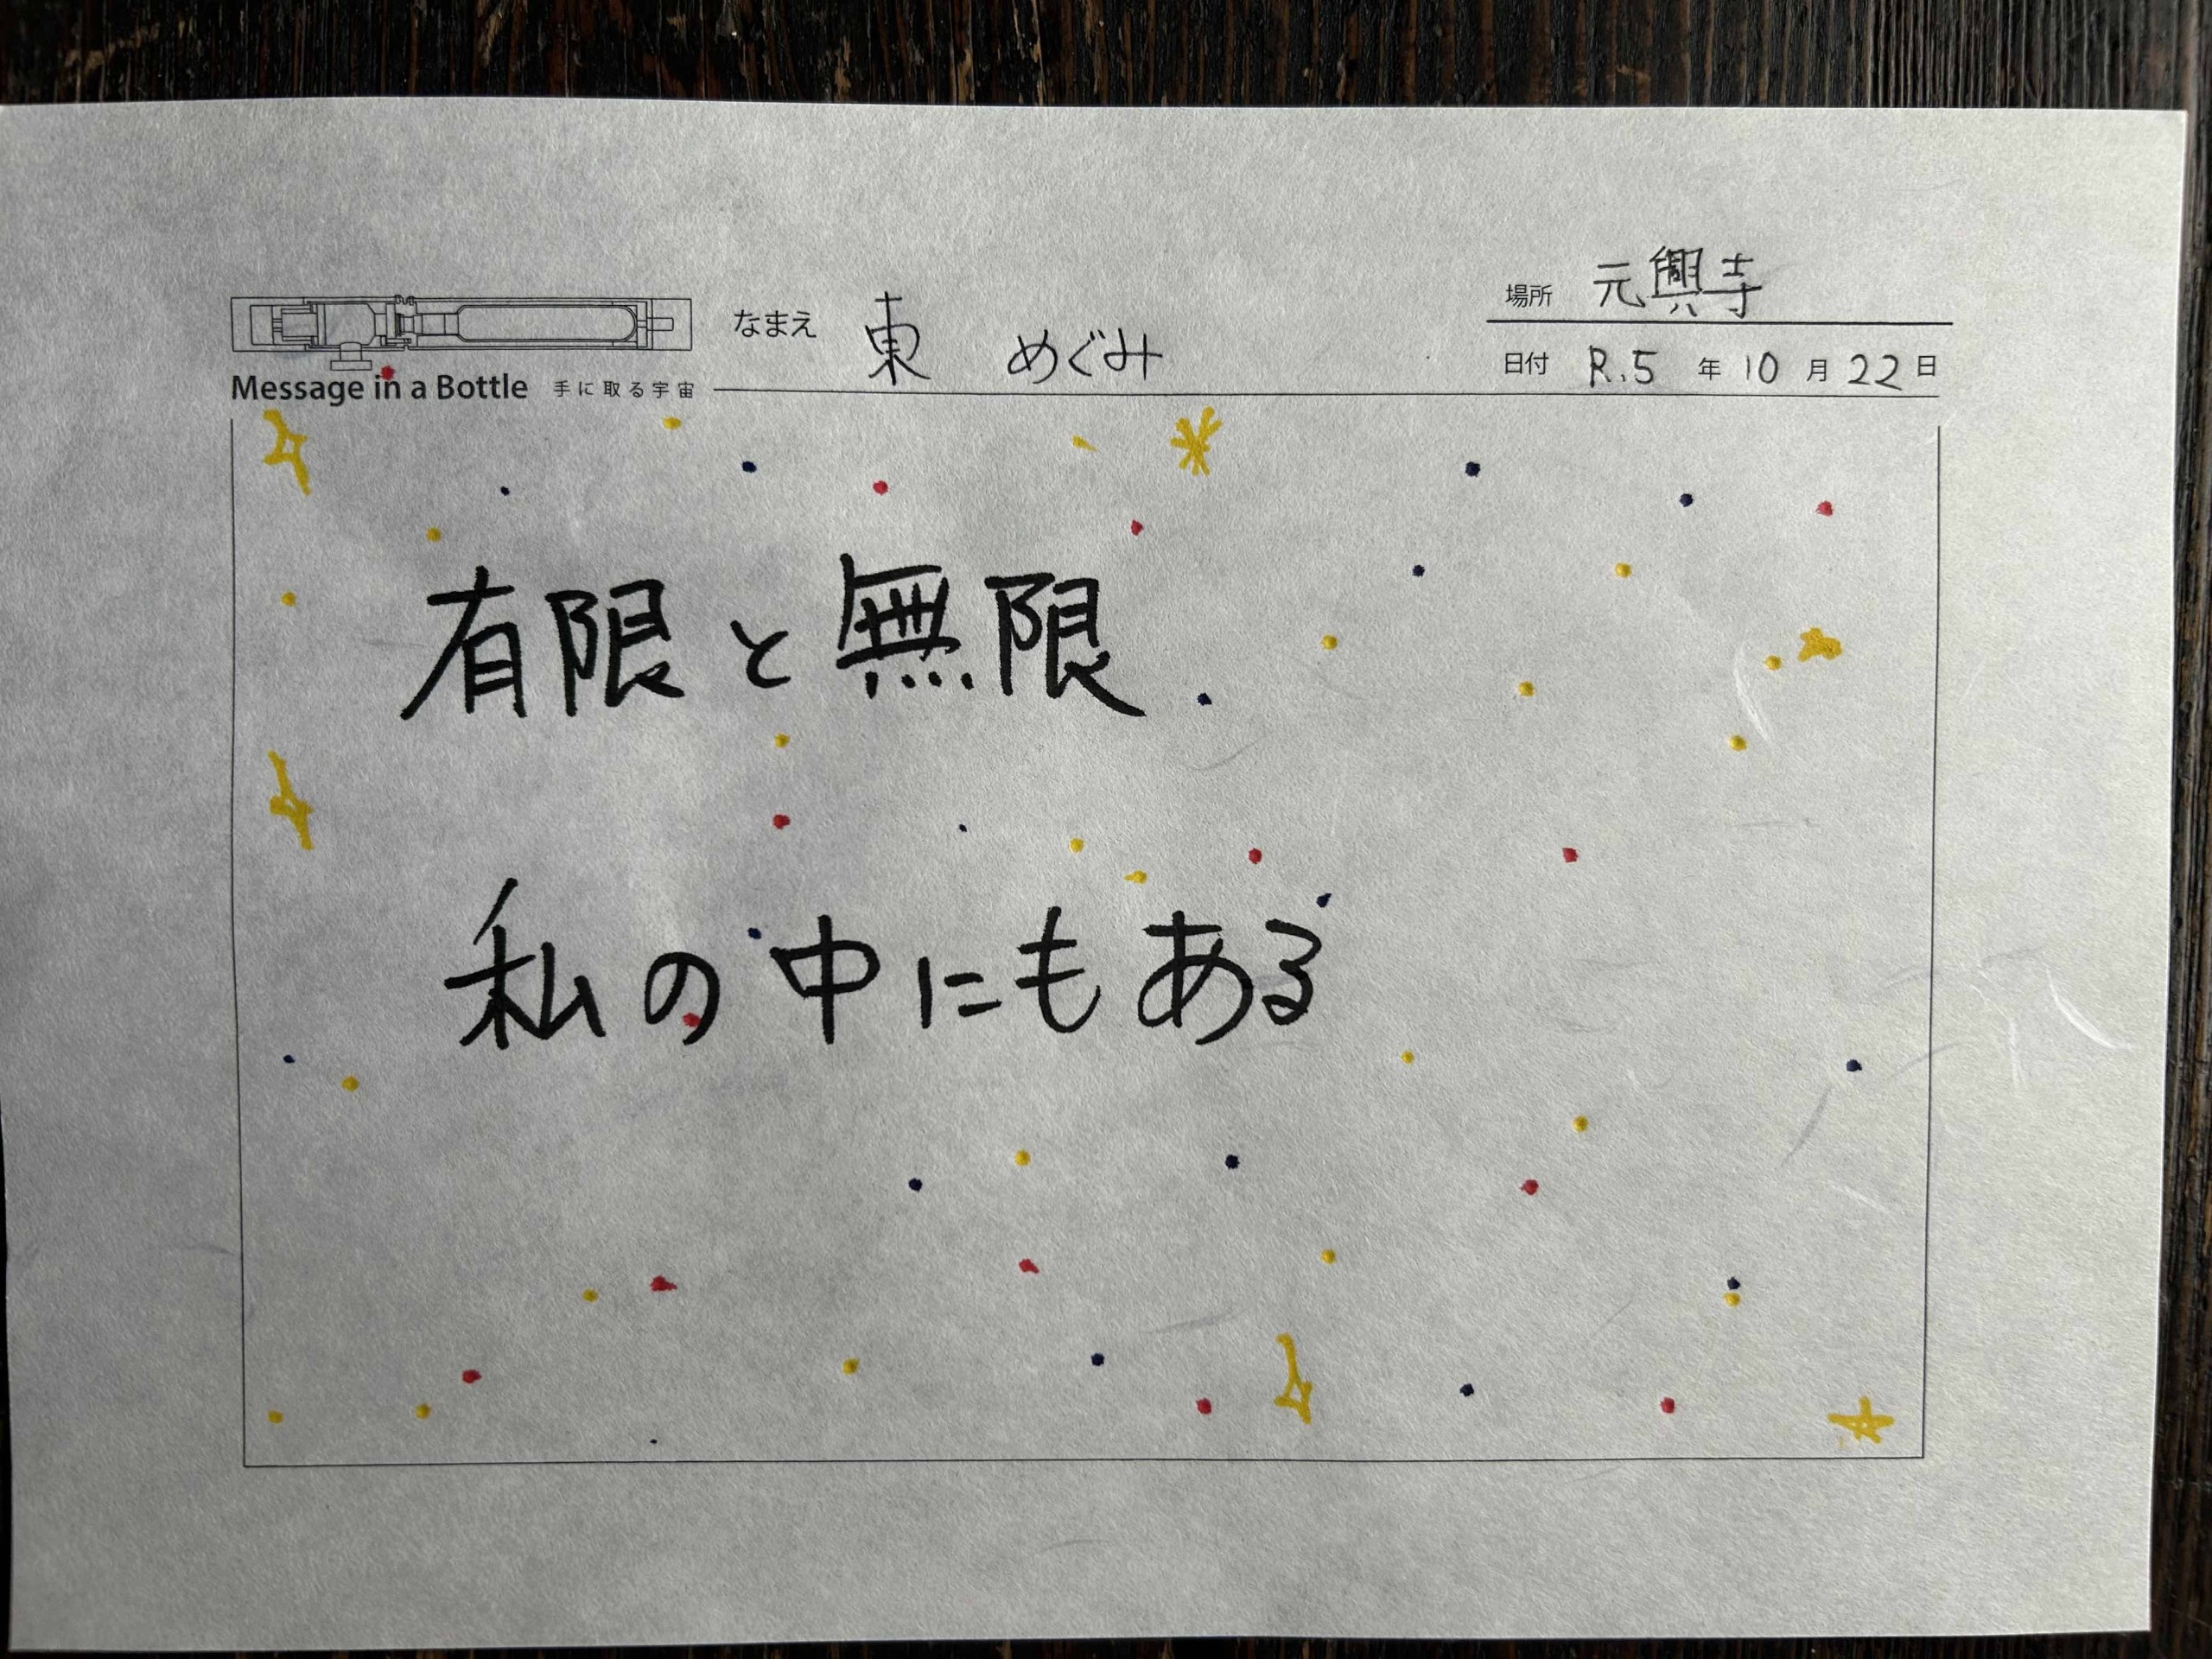 Message in a Bottle 手に取る宇宙
なまえ 東 めぐみ
場所 元興寺
日付 R.5 年 10 月 22 日
有限と無限
私の中にもある